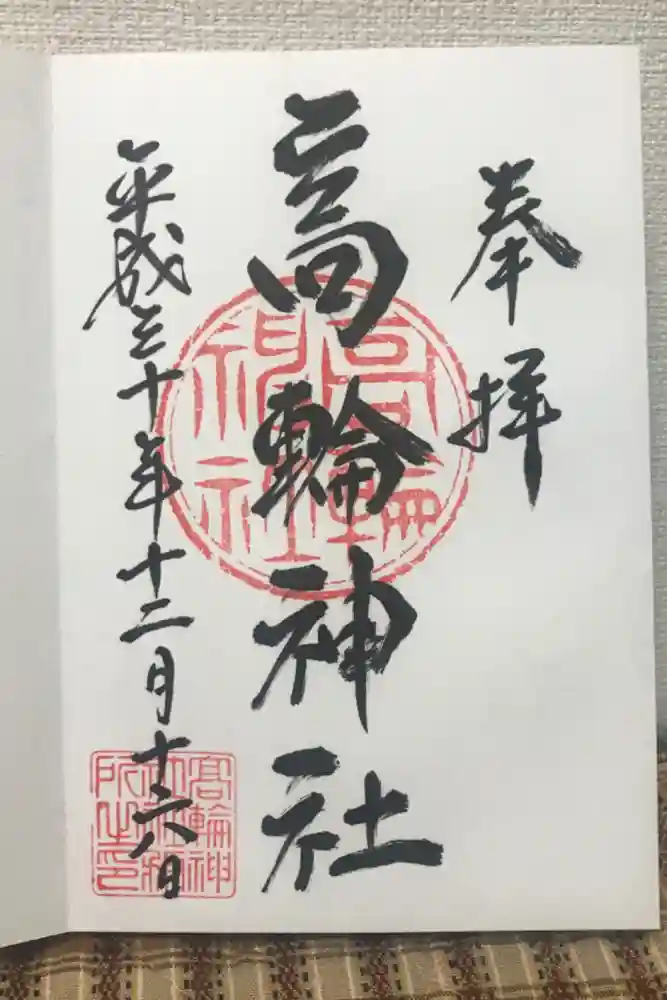 奉拝
高輪神社
平成三十年十二月十六日
高輪
神社
高輪神
社社務
所之印